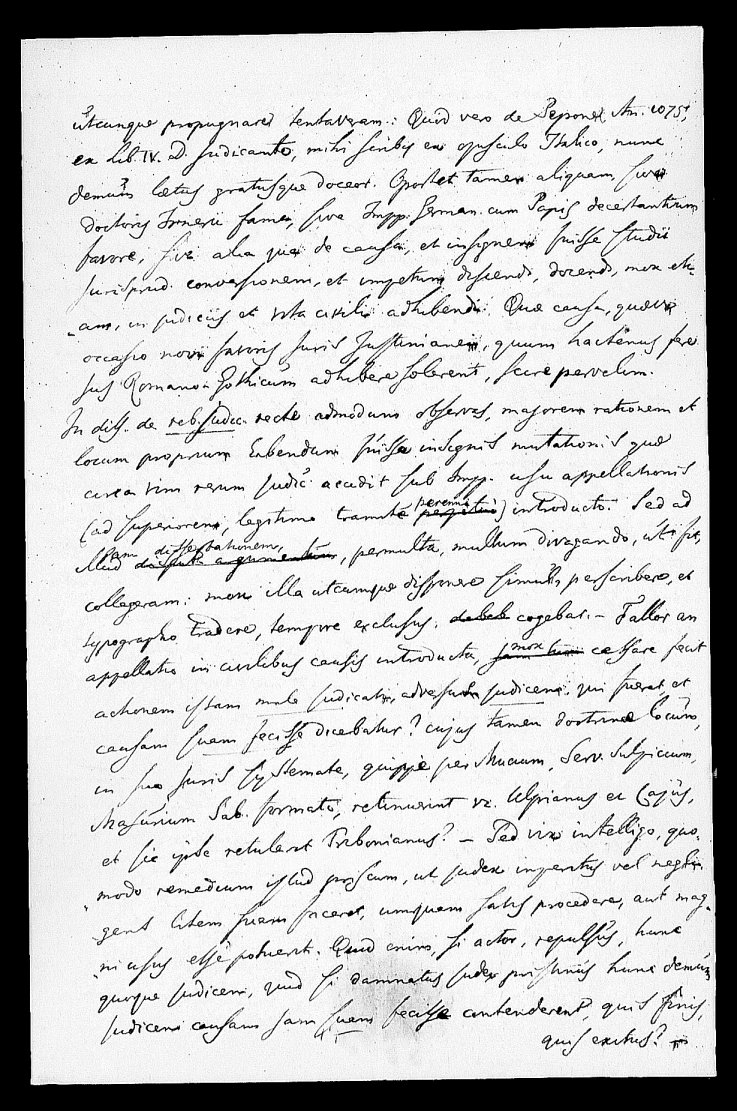 utcunque propugnare tentaveram: Quod vero de Pepone, An. 1075,
ex Lib. IV. D. judicante, mihi scribis ex opusculo Italico, nunc
demum laetus gratusque doceor. Oportet tamen aliquam, sive
doctoris Irnerii fama, sive Impp. German. cum Papis decertantium
favore, sive alia quae de causa, et insignem fuisse studii
Jurisprud. conversionem, et impetum discendi, docendi, mox eti-
am, in judiciis et vita civili adhibendi. Quae causa, quaeve
occasio novi favoris Juris Justinianei, quum hactenus fere
jus Romano-Gothicum adhibere solerent, scire pervelim.
In diss. de reb. judic. recte admodum observas, majorem rationem et
locum proprium habendum fuisse insignis mutationis quae
circa vim rerum judic. accidit sub Impp. usu appellationis
(ad superiorem, legitimo tramite perpetuo) introducto. Sed ad
illud disput. argumentum dissertationem, permulta, multum divagando, uti fit,
collegeram: mox illa utcumque disponere simul, perscribere, et
typographo tradere, tempore exclusus, cogebar. – Fallor an
appellatio in civilibus causis introducta mox cessare fecit
actionem istam male judicati, adversus judicem, qui fuerat, et
causam suam fecisse dicebatur? cujus tamen doctrinae locum,
in suo Juris systemate, quippe per Mucium, Serv. Sulpicium,
Masurium Sab. formato, retinuerint vr. Ulpianus et Cajus,
et sic ipse retulerit Tribonianus? – Sed vix intelligo, quo-
modo remedium istud priscum, ut judex imperitus vel negli-
gens litem suam faceret, umquam satis procedere, aut mag-
ni usus esse potuerit. Quid enim, si actor, repulsus, hunc
quoque judicem, quid si damnatus judex pristinus hunc demum
judicem causam jam suam fecisse contenderent, quis finis,
quis exitus?